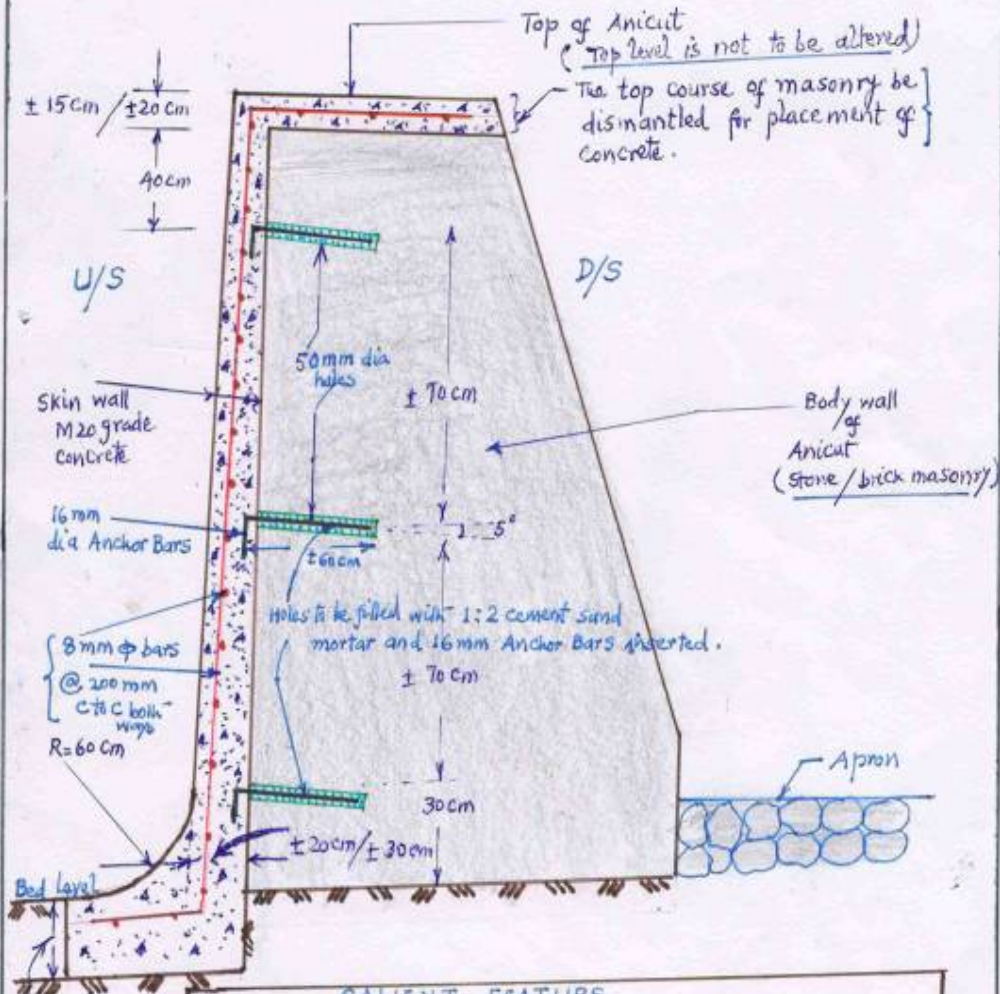 Top of Anicut
( Top level is not to be altered)
± 15 cm / ±20 cm
The top course of masonry be
dismantled for placement of
concrete.
40cm
U/S
D/S
50mm dia
holes
± 70 cm
Skin wall
M20 grade
concrete
Body wall
of
Anicut
(Stone / brick masonry)
16 mm
dia Anchor Bars
5°
±60cm
Holes to be filled with 1:2 cement sand
mortar and 16mm Anchor Bars inserted.
8mm φ bars
@ 200 mm
C to C both
ways
± 70 cm
R=60 cm
Apron
30cm
±20cm/± 30cm
Bed level
SALIENT FEATURE